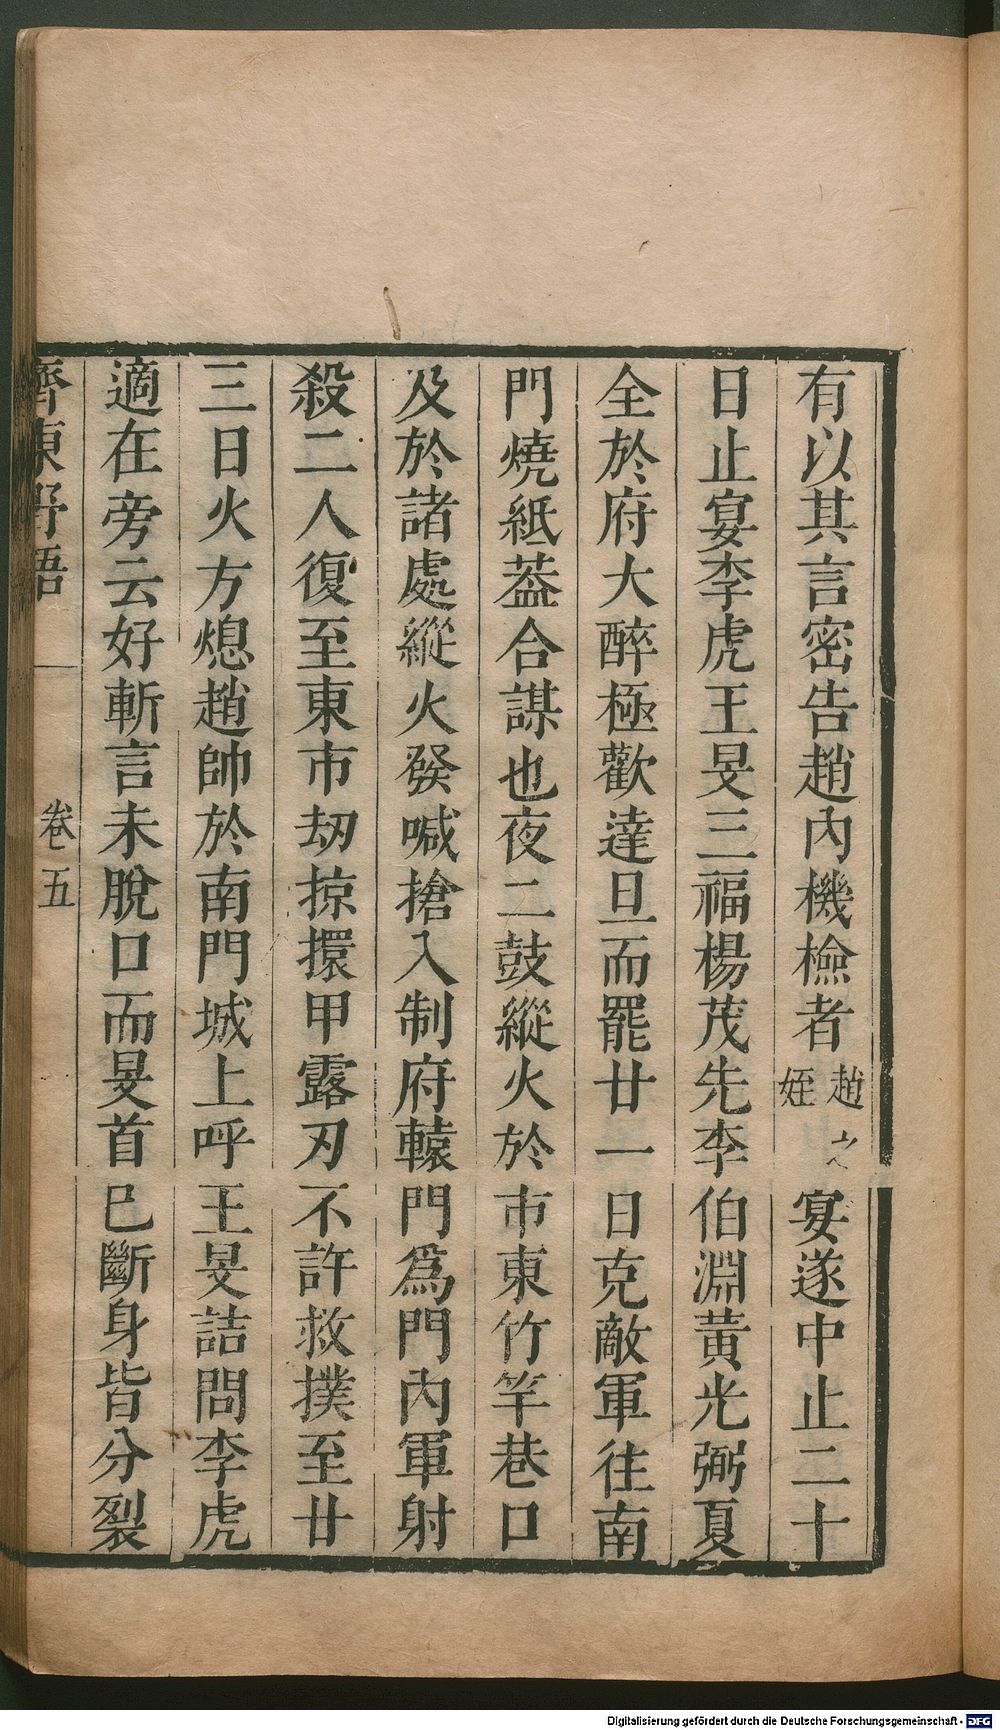 有以其言密告趙內機檢者趙之姪宴遂中止二十
日止宴李虎王旻三福楊茂先李伯淵黃光弼夏
全於府大醉極歡達旦而罷廿一日克敵軍往南
門燒紙葢合謀也夜二鼓縱火於市東竹竿巷口
及於諸處縱火發喊搶入制府轅門爲門內軍射
殺二人復至東市刼掠擐甲露刃不許救撲至廿
三日火方熄趙帥於南門城上呼王旻詰問李虎
適在旁云好斬言未脫口而旻首已斷身皆分裂
齊東野語 卷五
Digitalisierung gefördert durch die Deutsche Forschungsgemeinschaft - DFG